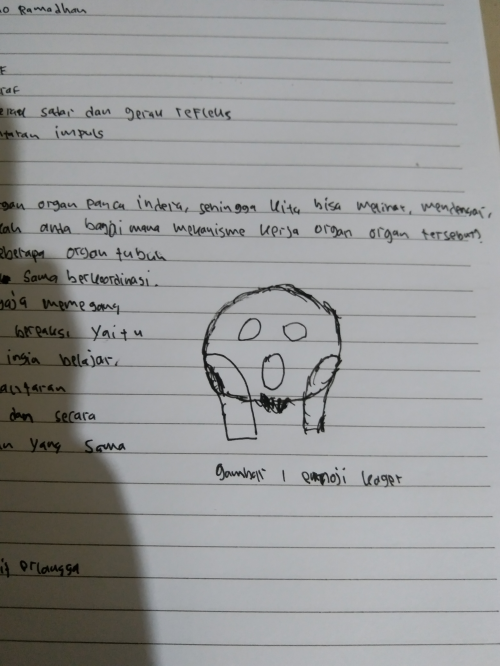 Ramadhan
F
raf
sadar dan gerak refleks
impuls
organ panca indera, sehingga kita bisa melihat, mendengar,
anda bagaimana mekanisme kerja organ organ tersebut?
beberapa organ tubuh
sama berkoordinasi.
memegang
bereaksi yaitu
ingin belajar.
dan secara
yang sama
gambar 1 emoji kaget
erlangga